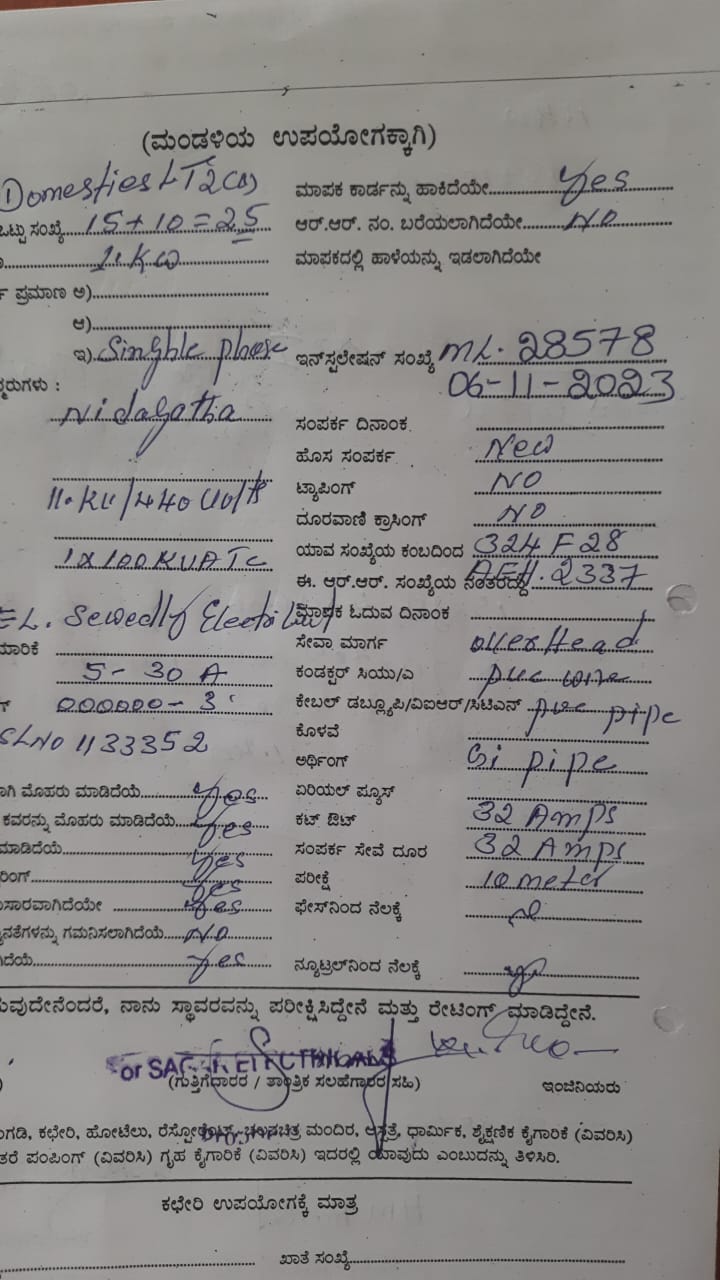 (ಮಂಡಳಿಯ ಉಪಯೋಗಕ್ಕಾಗಿ)
Domesties LT2(a) ಮಾಪಕ ಕಾರ್ಡನ್ನು ಹಾಕಿದೆಯೇ Yes
ಒಟ್ಟು ಸಂಖ್ಯೆ 15+10=25 ಆರ್.ಆರ್. ನಂ. ಬರೆಯಲಾಗಿದೆಯೇ NO
1.KW ಮಾಪಕದಲ್ಲಿ ಹಾಳೆಯನ್ನು ಇಡಲಾಗಿದೆಯೇ
ಪ್ರಮಾಣ ಅ)
ಆ)
ಇ) Singhle phase ಇನ್‌ಸ್ಟಲೇಷನ್ ಸಂಖ್ಯೆ ML. 28578
ರುಗಳು : 06-11-2023
Nidagatha ಸಂಪರ್ಕ ದಿನಾಂಕ
ಹೊಸ ಸಂಪರ್ಕ New
11.KV/440 Volts ಟ್ಯಾಪಿಂಗ್ NO
ದೂರವಾಣಿ ಕ್ರಾಸಿಂಗ್ NO
1X100KVATC ಯಾವ ಸಂಖ್ಯೆಯ ಕಂಬದಿಂದ 324 F 28
ಈ. ಆರ್.ಆರ್. ಸಂಖ್ಯೆಯ ನಂತರದ್ದು AEH. 2337
EL. Sewedly ಮಾಪಕ ಓದುವ ದಿನಾಂಕ
ಮಾರಿಕೆ ಸೇವಾ ಮಾರ್ಗ OverHead
5-30 A ಕಂಡಕ್ಟರ್ ಸಿಯು/ಎ pvc wire
000000-3 ಕೇಬಲ್ ಡಬ್ಲ್ಯೂಪಿ/ವಿಐಆರ್/ಸಿಟಿಎಸ್ pvc pipe
SLNO 1133352 ಕೊಳವೆ
ಅರ್ಥಿಂಗ್ Gi pipe
ಾಗಿ ಮೊಹರು ಮಾಡಿದೆಯೆ Yes ಏರಿಯಲ್ ಫ್ಯೂಸ್
ಕವರನ್ನು ಮೊಹರು ಮಾಡಿದೆಯೆ Yes ಕಟ್ ಔಟ್ 32 Amps
ಮಾಡಿದೆಯೆ Yes ಸಂಪರ್ಕ ಸೇವೆ ದೂರ 32 Amps
ರಿಂಗ್ Yes ಪರೀಕ್ಷೆ 10 meter
ುಸಾರವಾಗಿದೆಯೇ Yes ಫೇಸ್‌ನಿಂದ ನೆಲಕ್ಕೆ
ನತೆಗಳನ್ನು ಗಮನಿಸಲಾಗಿದೆಯೆ NO
ದೆಯೆ Yes ನ್ಯೂಟ್ರಲ್‌ನಿಂದ ನೆಲಕ್ಕೆ
ುವುದೇನೆಂದರೆ, ನಾನು ಸ್ಥಾವರವನ್ನು ಪರೀಕ್ಷಿಸಿದ್ದೇನೆ ಮತ್ತು ರೇಟಿಂಗ್ ಮಾಡಿದ್ದೇನೆ.
(ಗುತ್ತಿಗೆದಾರರ / ತಾಂತ್ರಿಕ ಸಲಹೆಗಾರರ ಸಹಿ) ಇಂಜಿನಿಯರು
ಂಗಡಿ, ಕಛೇರಿ, ಹೋಟೆಲು, ರೆಸ್ಟೋರೆಂಟ್, ಚಲನಚಿತ್ರ ಮಂದಿರ, ಆಸ್ಪತ್ರೆ, ಧಾರ್ಮಿಕ, ಶೈಕ್ಷಣಿಕ ಕೈಗಾರಿಕೆ (ವಿವರಿಸಿ)
ತರೆ ಪಂಪಿಂಗ್ (ವಿವರಿಸಿ) ಗೃಹ ಕೈಗಾರಿಕೆ (ವಿವರಿಸಿ) ಇದರಲ್ಲಿ ಯಾವುದು ಎಂಬುದನ್ನು ತಿಳಿಸಿರಿ.
ಕಛೇರಿ ಉಪಯೋಗಕ್ಕೆ ಮಾತ್ರ
ಖಾತೆ ಸಂಖ್ಯೆ